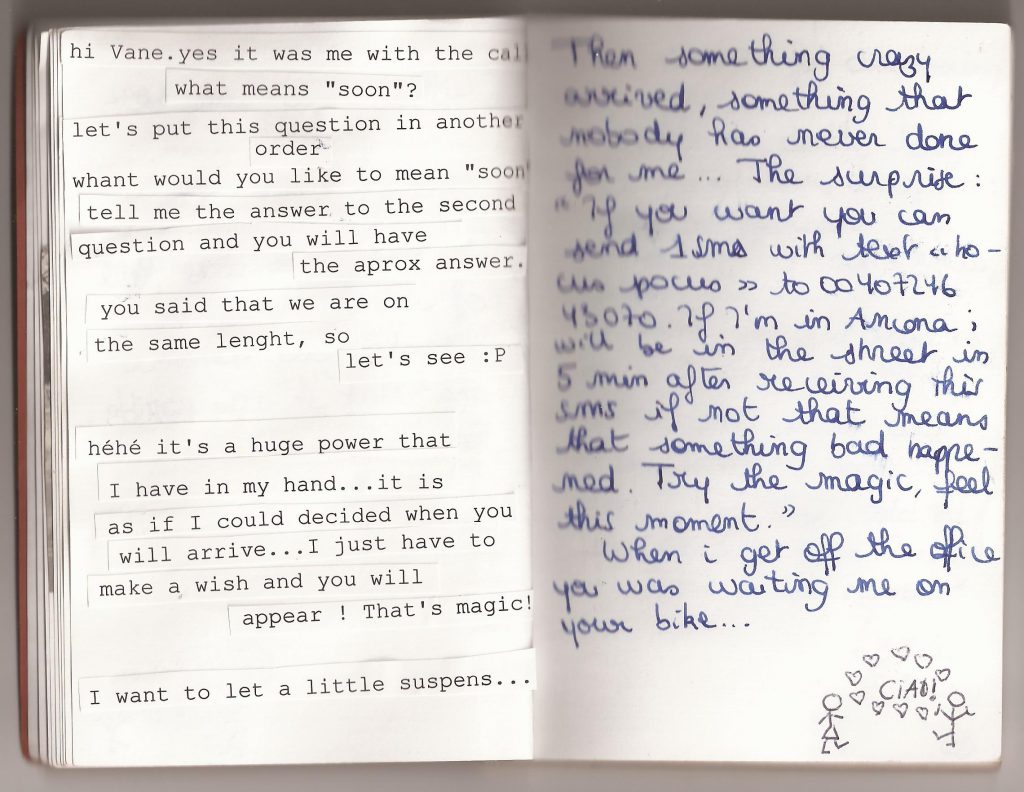 hi Vane.yes it was me with the cal
what means "soon"?
let's put this question in another
order
whant would you like to mean "soon"
tell me the answer to the second
question and you will have
the aprox answer.
you said that we are on
the same lenght, so
let's see :P
héhé it's a huge power that
I have in my hand...it is
as if I could decided when you
will arrive...I just have to
make a wish and you will
appear ! That's magic!
I want to let a little suspens...
Then something crazy
arrived, something that
nobody has never done
for me... The surprise:
"If you want you can
send 1 sms with text «ho-
cus pocus» to 00407246
43070. If I'm in Ancona i
will be in the street in
5 min after receiving this
sms if not that means
that something bad happe-
ned. Try the magic, feel
this moment."
When i get off the office
you was waiting me on
your bike...
CiAO!